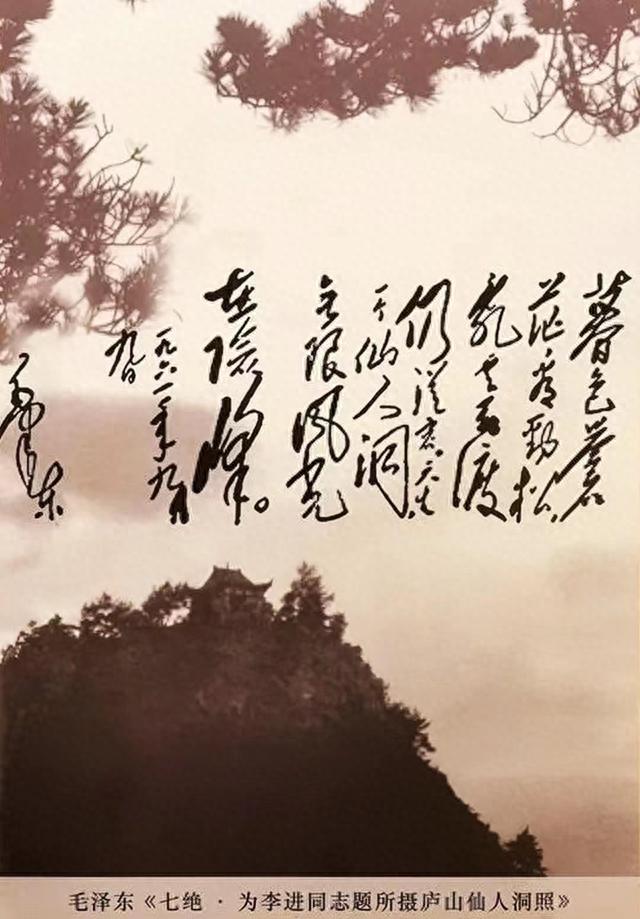 暮色蒼
茫看勁松,
乱云飞渡
仍從容。天生
一个仙人洞,
无限风光
在險峰。
一九六一年九月
九日
毛泽东
毛泽东《七绝 · 为李进同志题所摄庐山仙人洞照》